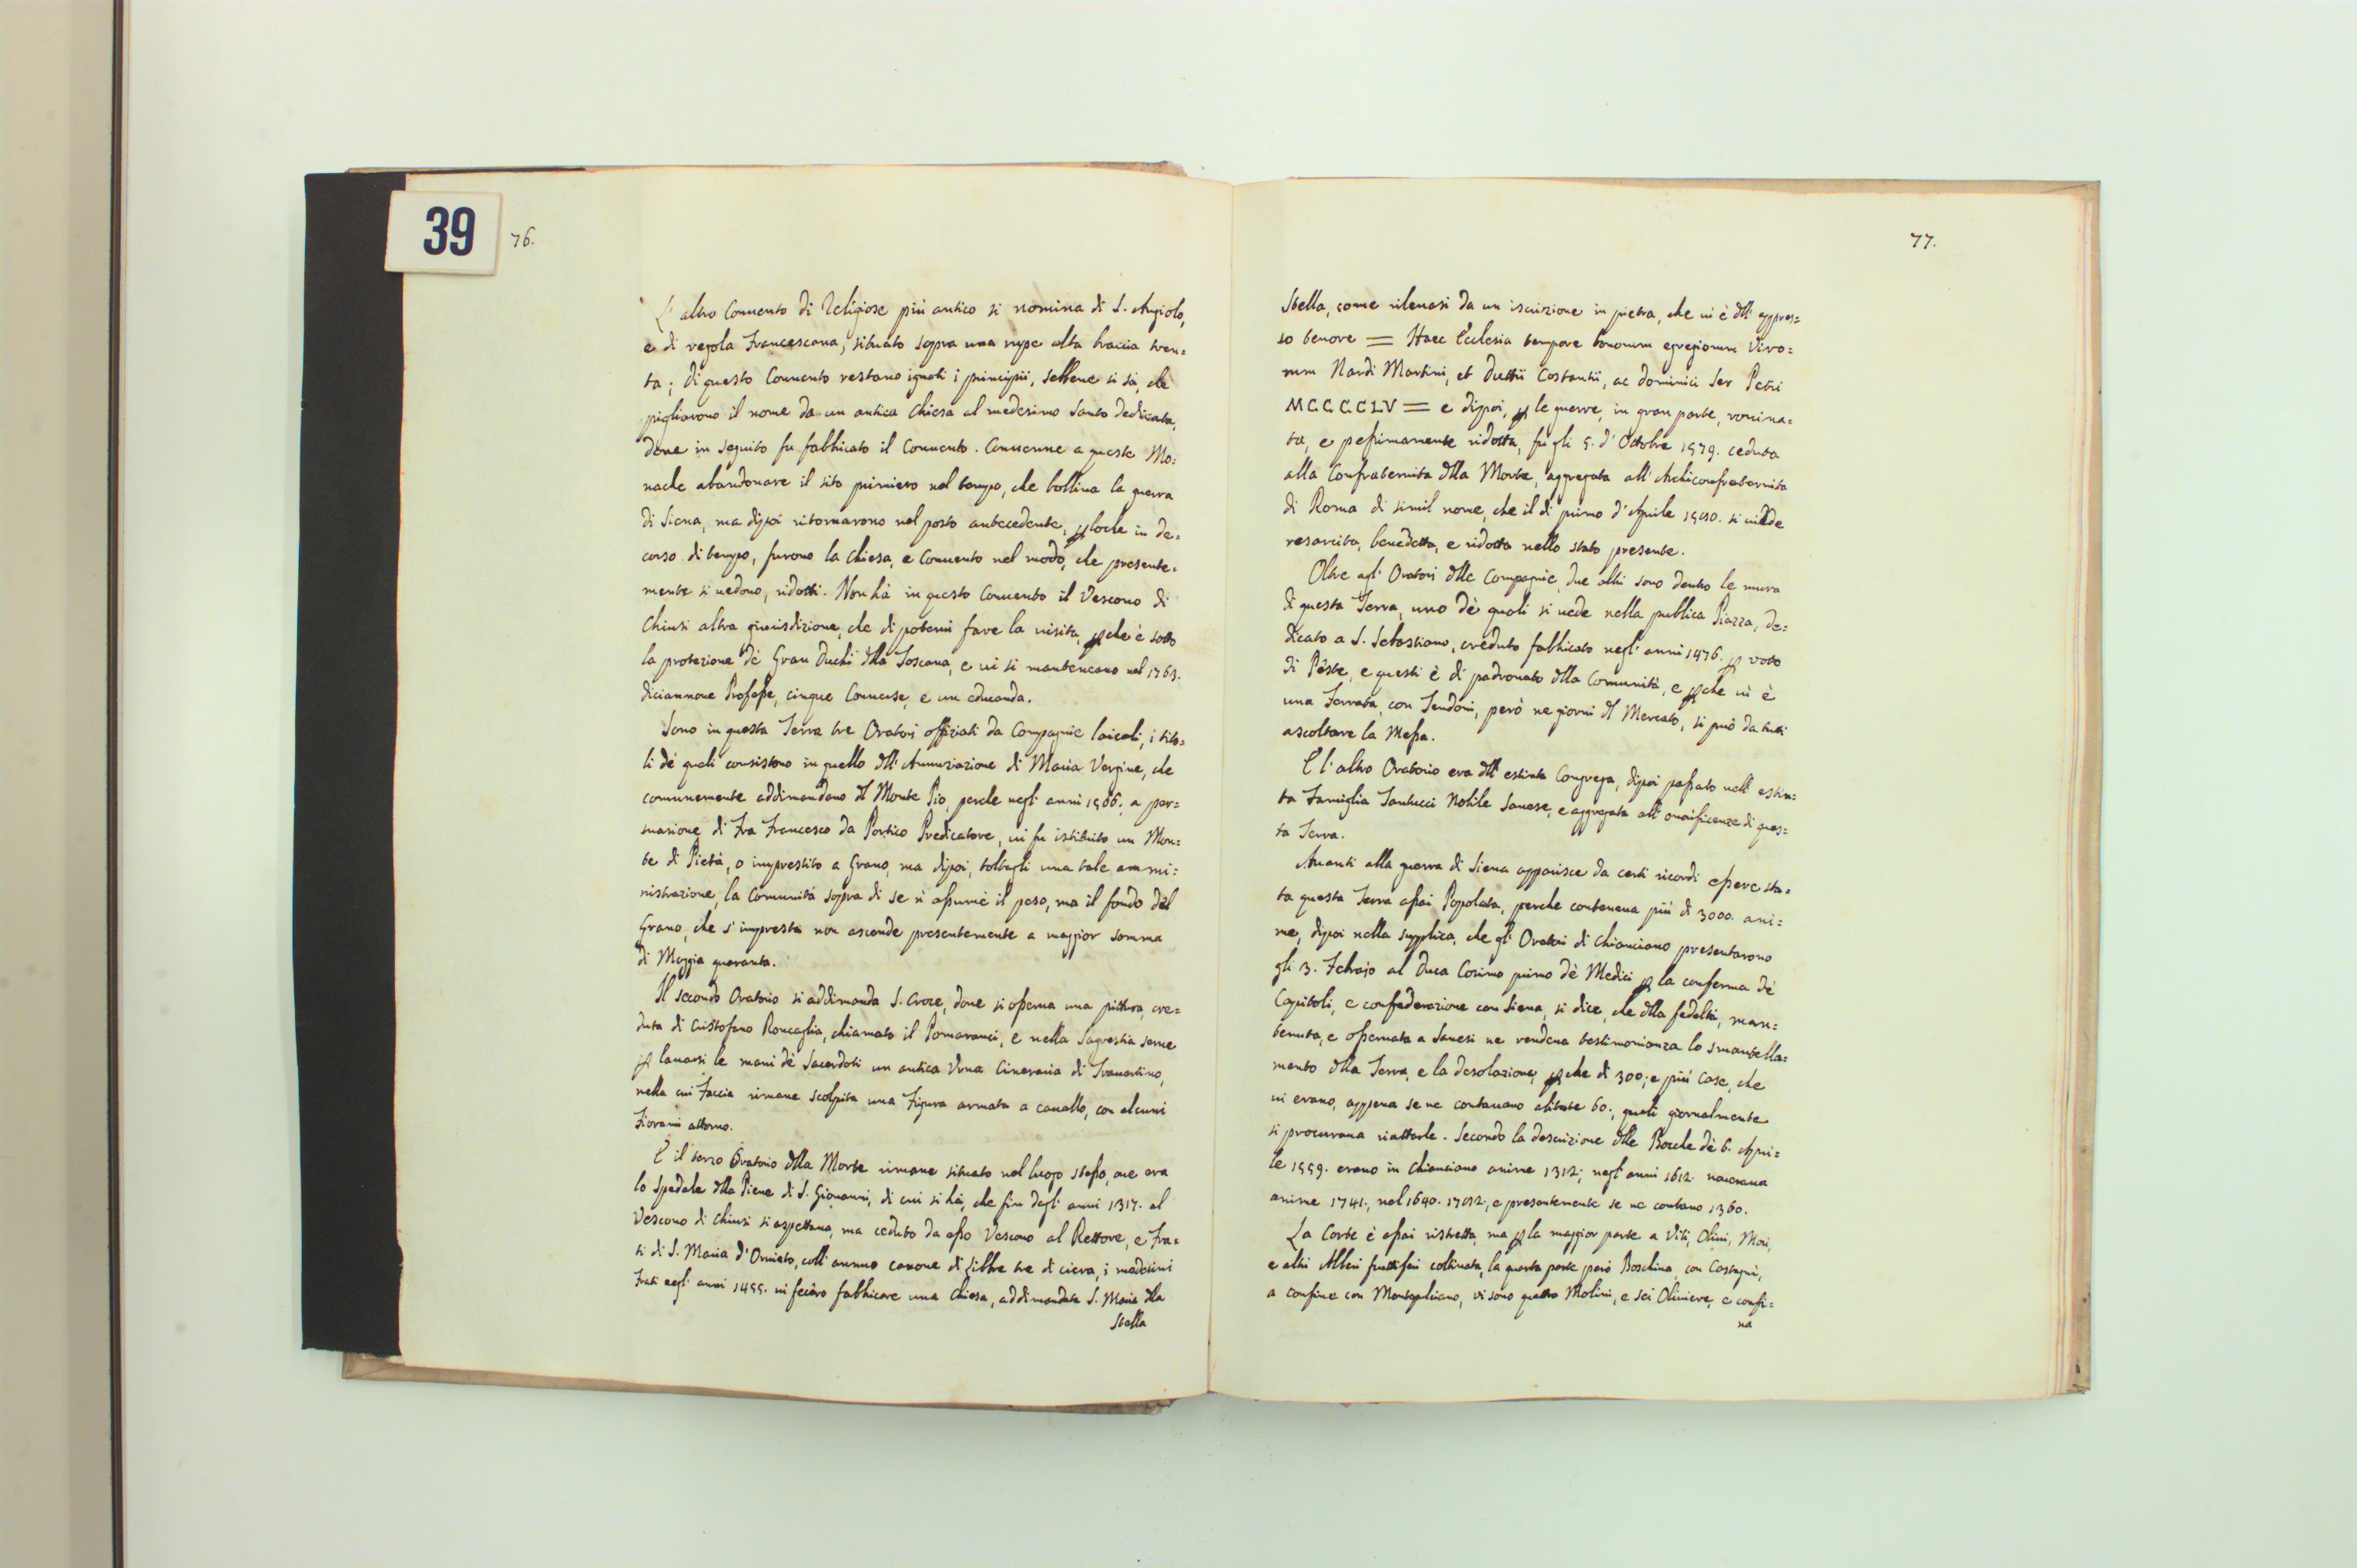 39
76.
L'altro Conuento di Religiose più antico si nomina di S. Angiolo,
e di regola Francescana, situato sopra una rupe alta braccia tren=
ta; di questo Conuento restano ignoti i principii, sebbene si sà, che
pigliarono il nome da un antica Chiesa al medesimo Santo dedicata,
doue in seguito fu fabbricato il Conuento. Conuenne a queste Mo=
nache abandonare il sito primiero nel tempo, che bolliua la guerra
di Siena, ma dipoi ritornarono nel posto antecedente, ploche in de=
corso di tempo, furono la Chiesa, e Conuento nel modo, che presente=
mente si uedono, ridotti. Non hà in questo Conuento il Vescouo di
Chiusi altra giurisdizione, che di poterui fare la uisita, pche è sotto
la protezione dè Gran Duchi dlla Toscana, e ui si manteneano nel 1763.
diciannoue Professe, cinque Conuerse, e un educanda.
Sono in questa Terra tre Oratori offiziati da Compagnie laicali, i tito=
li dè quali consistono in quello dll'Annunziazione di Maria Vergine, che
comunemente addimandano dl Monte Pio, perche negl'anni 1506. a per=
suasione di Fra Francesco da Portico Predicatore, ui fu istituito un Mon=
te di Pietà, o imprestito a Grano, ma dipoi, toltagli una tale ammi=
nistrazione, la Comunità sopra di se n'assunse il peso, ma il fondo del
Grano, che s'impresta non ascende presentemente a maggior somma
di Moggia quaranta.
Il secondo Oratorio si addimanda S. Croce, doue si osserua una pittura, cre=
duta di Cristofano Roncaglia, chiamato il Pomaranci, e nella Sagrestia serue
p lauarsi le mani dè Sacerdoti un antica Vrna Cineraria di Trauertino,
nella cui Faccia rimane scolpita una Figura armata a cauallo, con alcuni
Fiorami attorno.
E il terzo Oratorio dlla Morte rimane situato nel luogo stesso, oue era
lo Spedale dlla Pieue di S. Giouanni, di cui si hà, che fin dagl'anni 1317. al
Vescouo di Chiusi si aspettaua, ma ceduto da esso Vescouo al Rettore, e Fra=
ti di S. Maria d'Oruieto, coll'annuo canone di Libbre tre di ciera, i medesimi
Frati negl'anni 1455. ui fecèro fabbricare una Chiesa, addimandata S. Maria dlla
Stella
77.
Stella, come rileuasi da un iscrizione in pietra, che ui è dll'appres=
so tenore = Haec Ecclesia tempore bonorum egregiorum Viro=
rum Nardi Martini, et Duttii Costantii, ac Dominici Ser Petri
MCCCCLV = e dipoi, p le guerre, in gran parte, rouina=
ta, e pessimamente ridotta, fu gli 5. d'Ottobre 1579. ceduta
alla Confraternita dlla Morte, aggregata all'Archiconfraternita
di Roma di simil nome, che il dì primo d'Aprile si uidde
resarcita, benedetta, e ridotta nello stato presente.
Oltre agl'Oratori dlle Compagnie, due altri sono dentro le mura
di questa Terra, uno dè quali si uede nella publica Piazza, de=
dicato a S. Sebastiano, creduto fabbricato negl'anni 1476. p voto
di Peste, e questi è di padronato dlla Comunità, e pche ui è
una Ferrata, con Tendoni, però ne giorni dl Mercato, si può da tutti
ascoltare la Messa.
E l'altro Oratorio era dll'estinta Congrega, dipoi passato nell'estin=
ta Famiglia Santucci Nobile Sanese, e aggregata all'onorificenze di ques=
ta Terra.
Auanti alla guerra di Siena apparisce da certi ricordi essere sta=
ta questa Terra assai Popolata, perche conteneua più di 3000. ani=
me, dipoi nella supplica, che gl'Oratori di Chianciano presentarono
gli 3. Febrajo al Duca Cosimo primo dè Medici p la conferma dè
Capitoli, e confederazione con Siena, si dice, che dlla fedeltà, man=
tenuta, e osseruata a Sanesi ne rendeua testimonianza lo smantella=
mento dlla Terra, e la desolazione, pche di 300; e più Case, che
ui erano, appena se ne contauano abitate 60., quali giornalmente
si procuraua riattarle. Secondo la descrizione dlle Bocche dè 6. Apri=
le 1559. erano in Chianciano anime 1312; negl'anni 1612.
anime 1741., nel 1640. e presentemente se ne contano 1360.
La Corte è assai ristretta, ma p la maggior parte a Viti, Oliui, Mori,
e altri Alberi fruttiferi coltiuata, la quarta parte però Boschiua, con Castagni,
a confine con Montepulciano, vi sono quattro Molini, e sei Oliuiere, e confi=
na